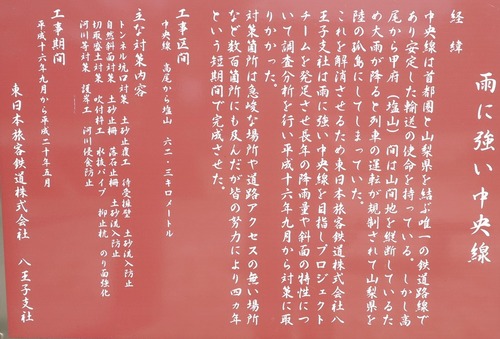 雨に強い中央線
経緯
中央線は首都圏と山梨県を結ぶ唯一の鉄道路線で
あり安定した輸送の使命を持っている。しかし高
尾から甲府(塩山)間は山間地を縦断しているた
め大雨が降ると列車の運転が規制されて山梨県を
陸の孤島にしてしまっていた。
これを解消させるため東日本旅客鉄道株式会社八
王子支社は雨に強い中央線を目指しプロジェクト
チームを発足させ長年の降雨量や斜面の特性につ
いて調査分析を行い平成十六年九月から対策に取
りかかった。
対策箇所は急峻な場所や道路アクセスの無い場所
など数百箇所にも及んだが皆の努力により四カ年
という短期間で完成させた。
工事区間
中央線 高尾から塩山 六二・三キロメートル
主な対策内容
トンネル坑口対策 土砂止擁工 待受擁壁 土砂流入防止
自然斜面対策 土砂止柵 落石止柵 土砂流入防止
切取盛土対策 吹付枠工 水抜パイプ 抑止杭 のり面強化
河川等対策 護岸工 河川侵食防止
工事期間
平成十六年九月から平成二十年五月
東日本旅客鉄道株式会社 八王子支社